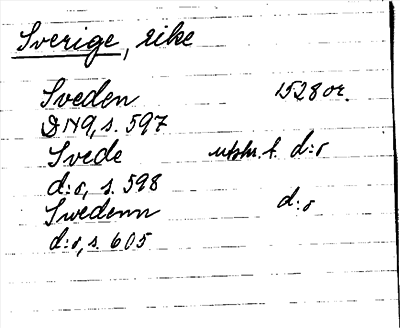 Sverige, rike
Sveden 1528 or.
DN9, s. 597
Svede utskr. f. d:o
d:o, s. 598
Swedenn d:o
d:o, s. 605